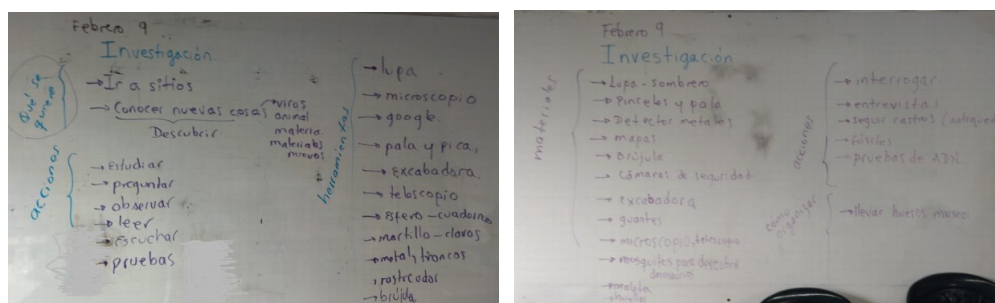 Febrero 9
Investigación
Qué se quiere
→Ir a sitios
→Conocer nuevas cosas
Descubrir
→virus
animal
materia
materiales
nuevos
acciones
→estudiar
→preguntar
→observar
→leer
→escuchar
→pruebas
herramientas
→lupa
→microscopio
→google
→pala y pica,
→excabadora
→telescopio
→esfero-cuaderno
→martillo-clavos
→metal, troncos
→brújula
Febrero 9
Investigación
materiales
→Lupa-sombrero
→Pinceles y pala
→Detector metales
→mapas
→brújula
→cámaras de seguridad
→excabadora
→guantes
→microscopio, telescopio
→maleta
acciones
→interrogar
→entrevista
→seguir rastros
→fósiles
→pruebas de ADN
cómo organizar
→llevar huesos museo